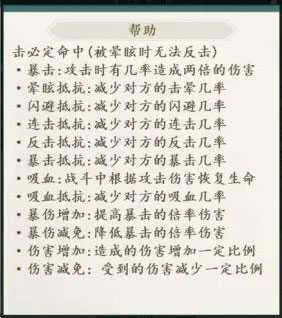 帮助
击必定命中(被晕眩时无法反击)
• 暴击:攻击时有几率造成两倍的伤害
• 晕眩抵抗:减少对方的击晕几率
• 闪避抵抗:减少对方的闪避几率
• 连击抵抗:减少对方的连击几率
• 反击抵抗:减少对方的反击几率
• 暴击抵抗:减少对方的暴击几率
• 吸血:战斗中根据攻击伤害恢复生命
• 吸血抵抗:减少对方的吸血几率
• 暴伤增加:提高暴击的倍率伤害
• 暴伤减免:降低暴击的倍率伤害
• 伤害增加:造成的伤害增加一定比例
• 伤害减免: 受到的伤害减少一定比例